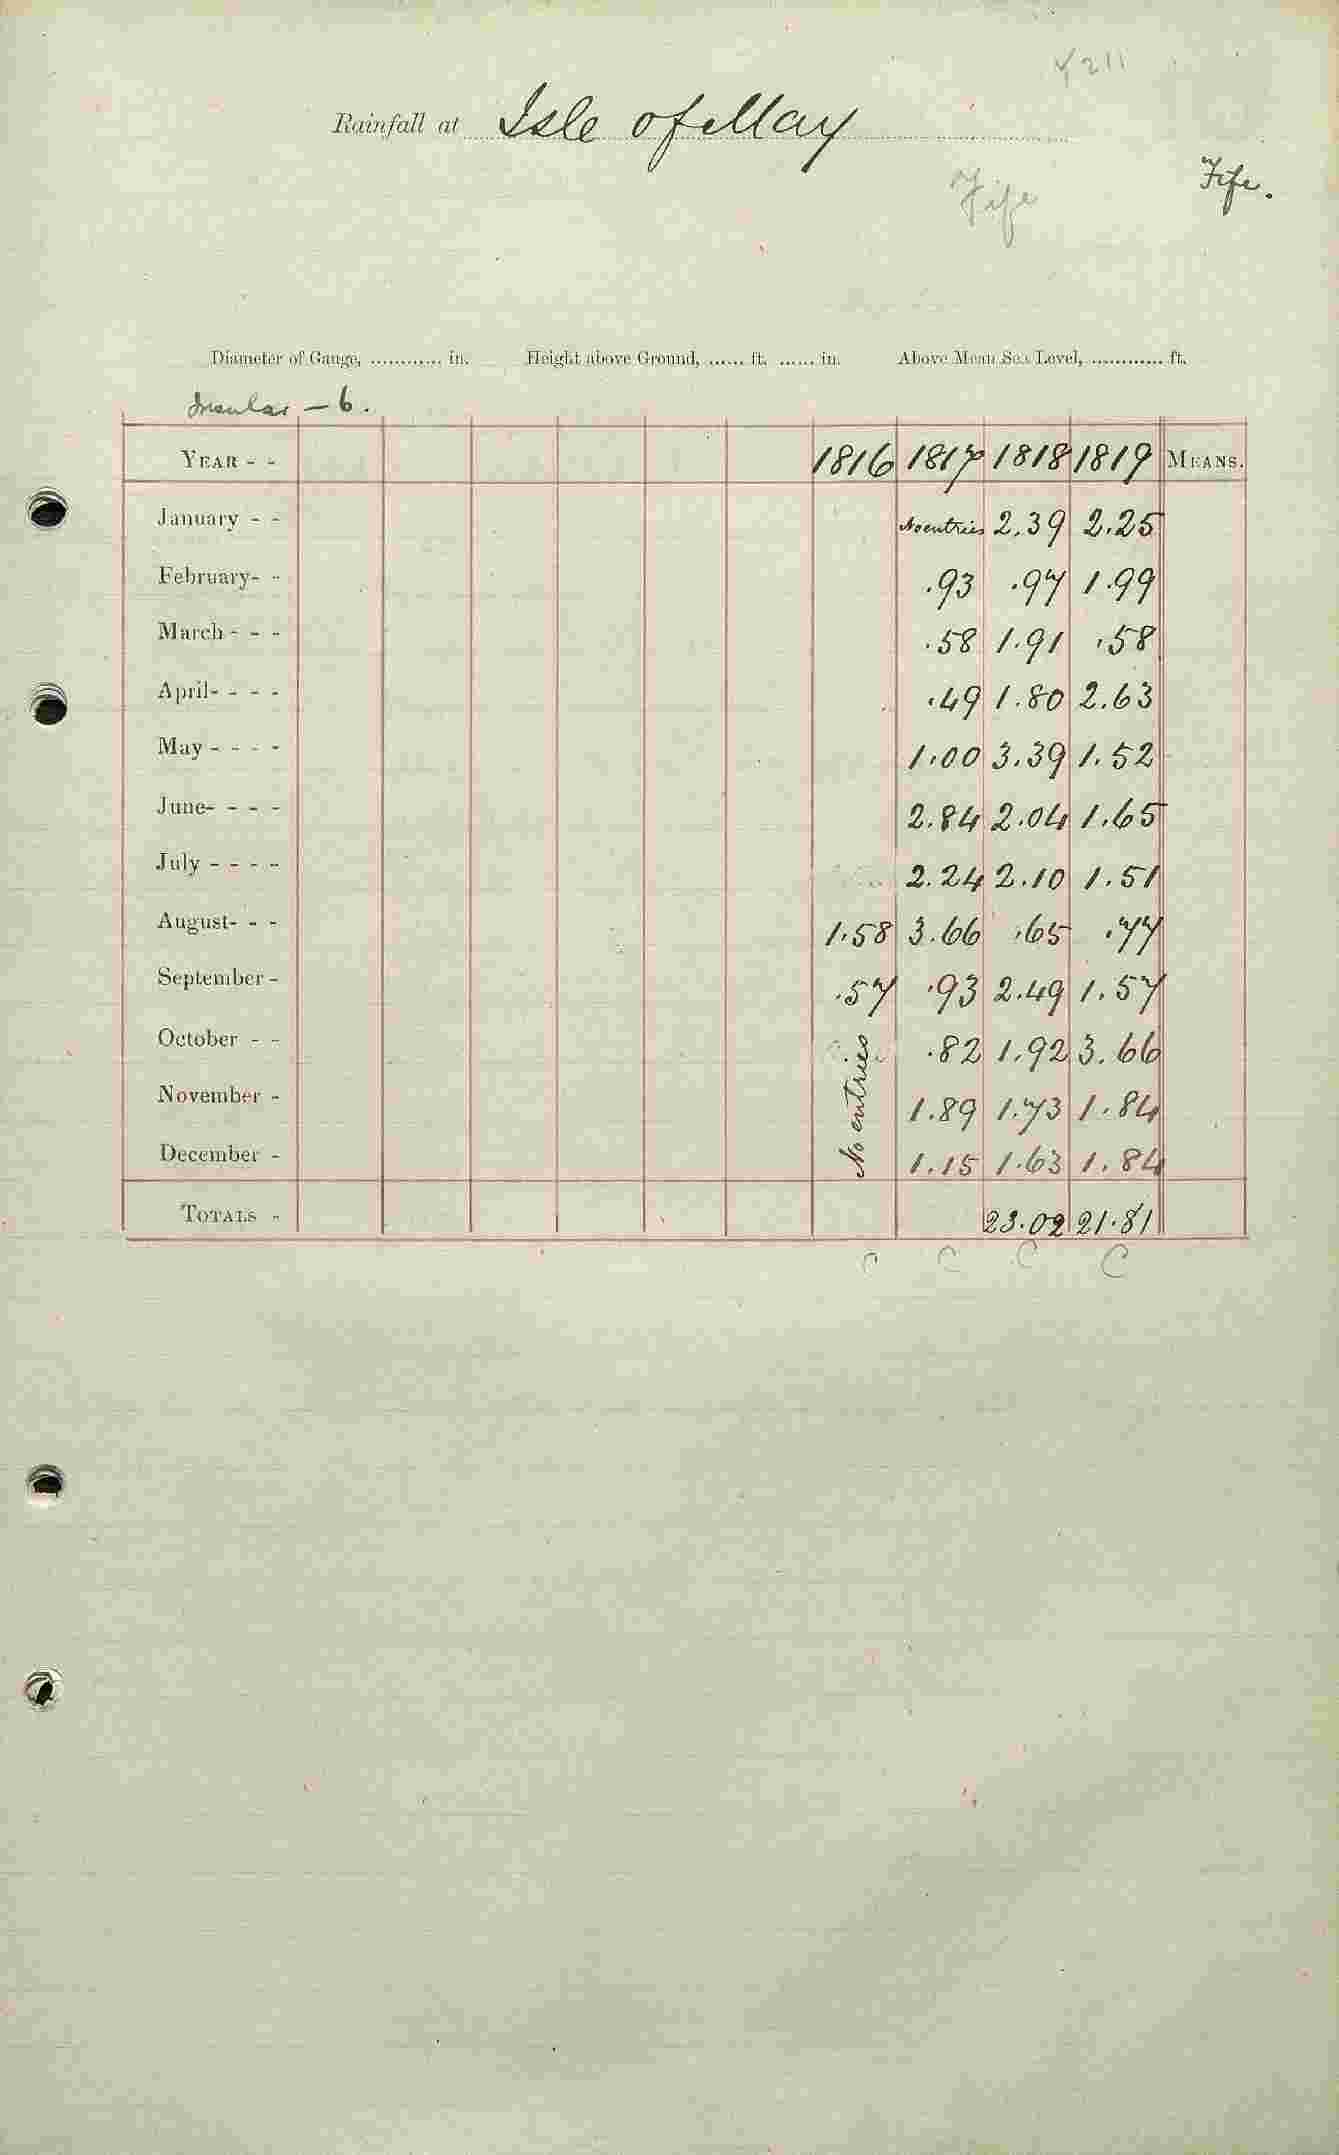 211
Rainfall at Isle of May
Fife Fife.
Diameter of Gauge, ............ in. Height above Ground, ...... ft. ...... in. Above Mean Sea Level, ............ ft.
Insular – 6.
YEAR - - 1816 1817 1818 1819 MEANS.
January - - No entries 2.39 2.25
February- - .93 .97 1.99
March - - - .58 1.91 .58
April- - - - .49 1.80 2.63
May - - - - 1.00 3.39 1.52
June- - - - 2.84 2.04 1.65
July - - - - 2.24 2.10 1.51
August- - - 1.58 3.66 .65 .77
September - .57 .93 2.49 1.57
October - - No entries .82 1.92 3.66
November - 1.89 1.73 1.84
December - 1.15 1.63 1.84
TOTALS - 23.02 21.81
C C C C